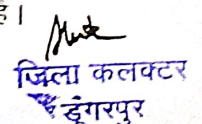 है।
जिला कलक्टर
डूंगरपुर